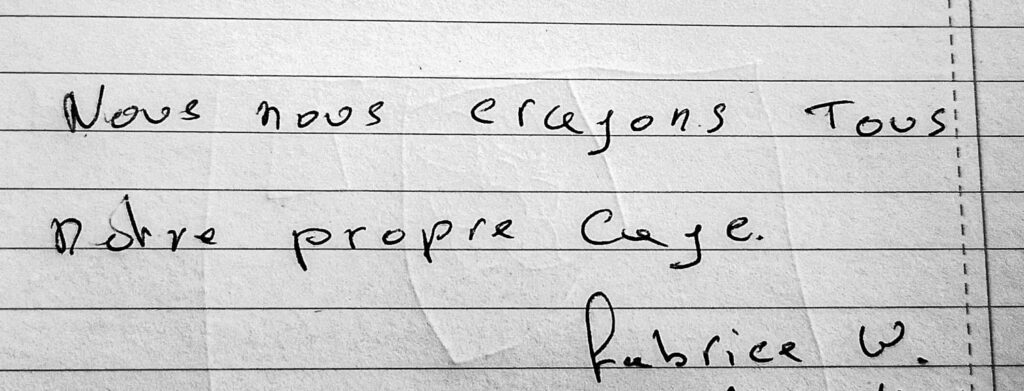 Nous nous Tous
nôtre propre Cage.
fabrice W.